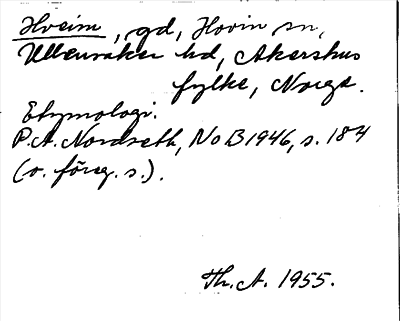 Hveim, gd, Hovin sn,
Ullensaker hd, Akershus
fylke, Norge.
Etymologi.
P.A. Nordseth, NoB 1946, s. 184
(o. föreg. s.).
Th. A. 1955.